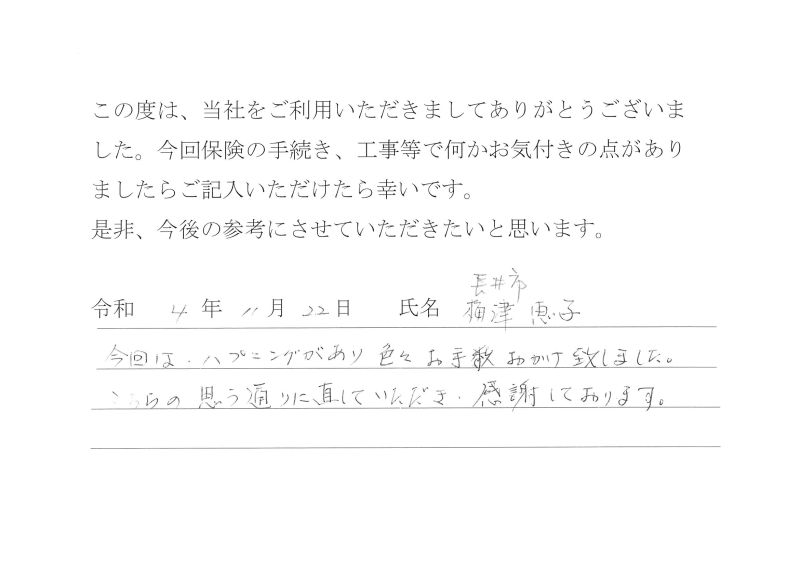 この度は、当社をご利用いただきましてありがとうございま
した。今回保険の手続き、工事等で何かお気付きの点があり
ましたらご記入いただけたら幸いです。
是非、今後の参考にさせていただきたいと思います。
長井市
令和 4 年 11 月 22 日 氏名 梅津 恵子
今回は、ハプニングがあり色々お手数おかけ致しました。
こちらの思う通りに直していただき、感謝しております。